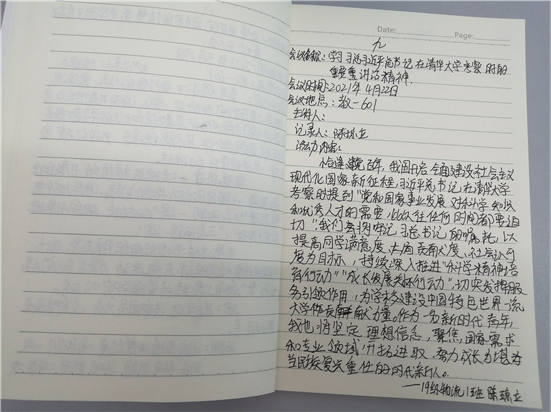 Date: Page:
九
会议名称：学习习近平总书记在清华大学考察时的
重要讲话精神.
会议时间：2021年4月22日
会议地点：教一601
主持人：
记录人：陈琼立
活动内容：
恰逢建党百年，我国开启全面建设社会主义
现代化国家新征程，习近平总书记在清华大学
考察时提到“党和国家事业发展对科学知识
和优秀人才的需要，比以往任何时候都要迫
切”。我们要牢记习总书记的嘱托，以
提高同学满意度、大局贡献度、社会认可
度为目标，持续深入推进“科学精神培
育行动”“成长发展支持行动”，切实发挥服
务引领作用，为学校建设中国特色世界一流
大学作贡献力量。作为一名新时代青年，
我也将坚定理想信念，聚焦国家需求
和专业领域，开拓进取，努力成为堪当
民族复兴重任的时代新人。
——19级物流1班 陈琼立